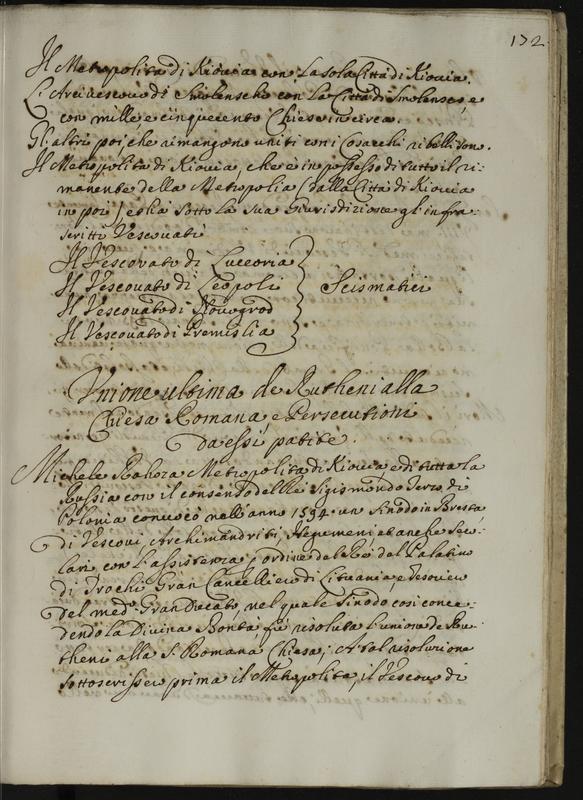 132
Il Metropolita di Kiovia con la sola Città di Kiovia.
L'Arcivescovo di Smolensche con la Città di Smolensco, e
con mille, e cinquecento Chiese in circa.
Gl'altri poi, che rimangono uniti con i Cosacchi ribelli sono.
Il Metropolita di Kiovia, che è in possesso di tutto il ri:
manente della Metropolia (dalla Città di Kiovia
in poi) et hà sotto la sua Giurisdizione gl'infra:
scritti Vescovati
Il Vescovato di Luceoria
Il Vescovato di Leopoli
Il Vescovato di Novogrod
Il Vescovato di Premislia
Scismatici
Unione ultima de Rutheni alla
Chiesa Romana, e Persecutioni
da essi patite.
Michele Rahoza Metropolita di Kiovia, e di tutta la
Russia con il consenso del Rè Sigismondo Terzo di
Polonia convocò nell'anno 1594. un Sinodo in Bresta
di Vescovi, Archimandriti, Hegumeni et anche Seco:
lari con l'assistenza, e ordine del Rè del Palatino
di Trochi Gran Cancelliero di Lituania, e Tesoriero
del med.º Gran Ducato, nel quale Sinodo così conce:
dendo la Divina Bontà fù risoluta l'unione de Ru:
theni alla S. Romana Chiesa; A tal risoluzione
sottoscrissero prima il Metropolita, il Vescovo di